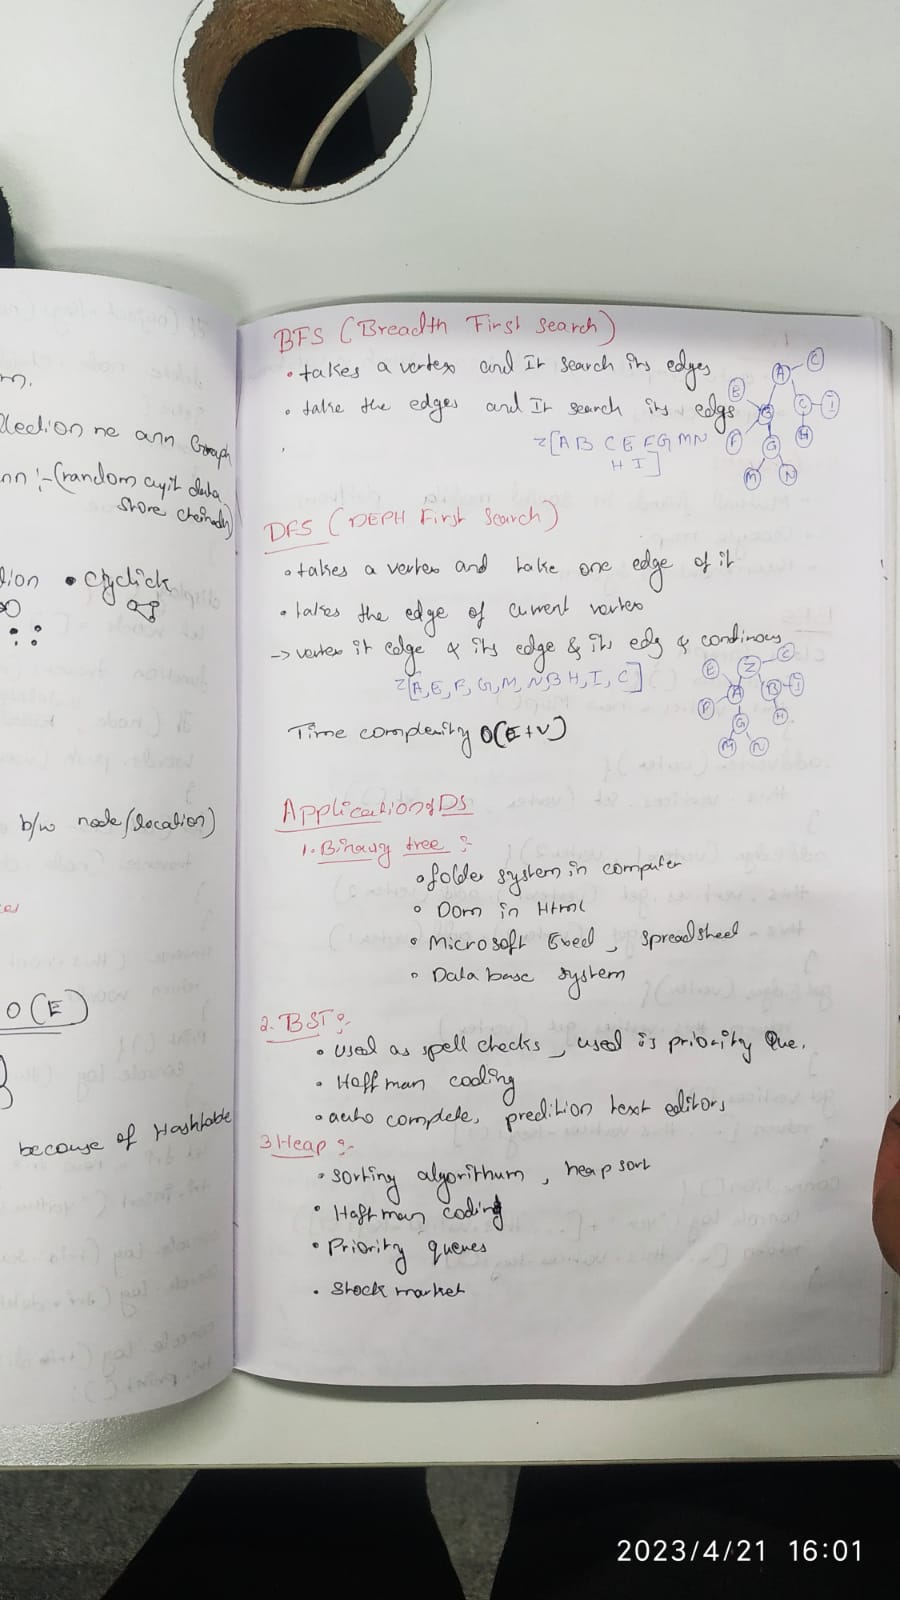 m.
llection ne ann Graph
nn :- (random ayit data
store cheinads)
tion • Cyclick
b/w node/location)
O(E)
because of Hashtable
BFS (Breadth First Search)
• takes a vertex and It search its edges
• take the edges and It search its edgs
Z[A B C E F G M N
H I]
A C B C I E F G H M N
DFS (DEPH First Search)
• takes a vertex and take one edge of it
• takes the edge of current vertex
-> vertex it edge & its edge & its edg & continous
Z[A, E, F, G, M, N, B H, I, C]
E Z C A B I F G H M N
Time complexity O(E+V)
Application of DS
1. Binary tree :-
• folder system in computer
• Dom in Html
• Microsoft Exel, spreadsheet
• Data base system
2. BST :-
• used as spell checks, used is priority Que.
• Hoffman coding
• auto complete, predition text editors
3 Heap :-
• sorting algorithum, heap sort
• Haffman coding
• Priority queues
• Stock market
2023/4/21 16:01